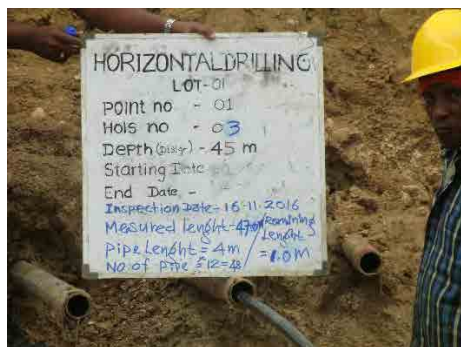 HORIZONTAL DRILLING
LOT-01
Point no - 01
Hols no - 03
Depth - 45 m
Starting Date
End Date -
Inspection Date - 16.11.2016
Measured lenght - 47m Remaining
Pipe Lenght = 4m Lenght
No of pipe = 12=48 = 1.0 M